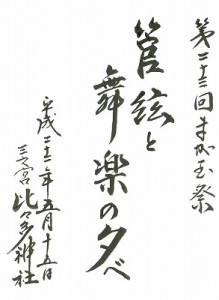 第二十三回まが玉祭
管絃と
舞楽の夕べ
平成二十二年五月十五日
三之宮比々多神社